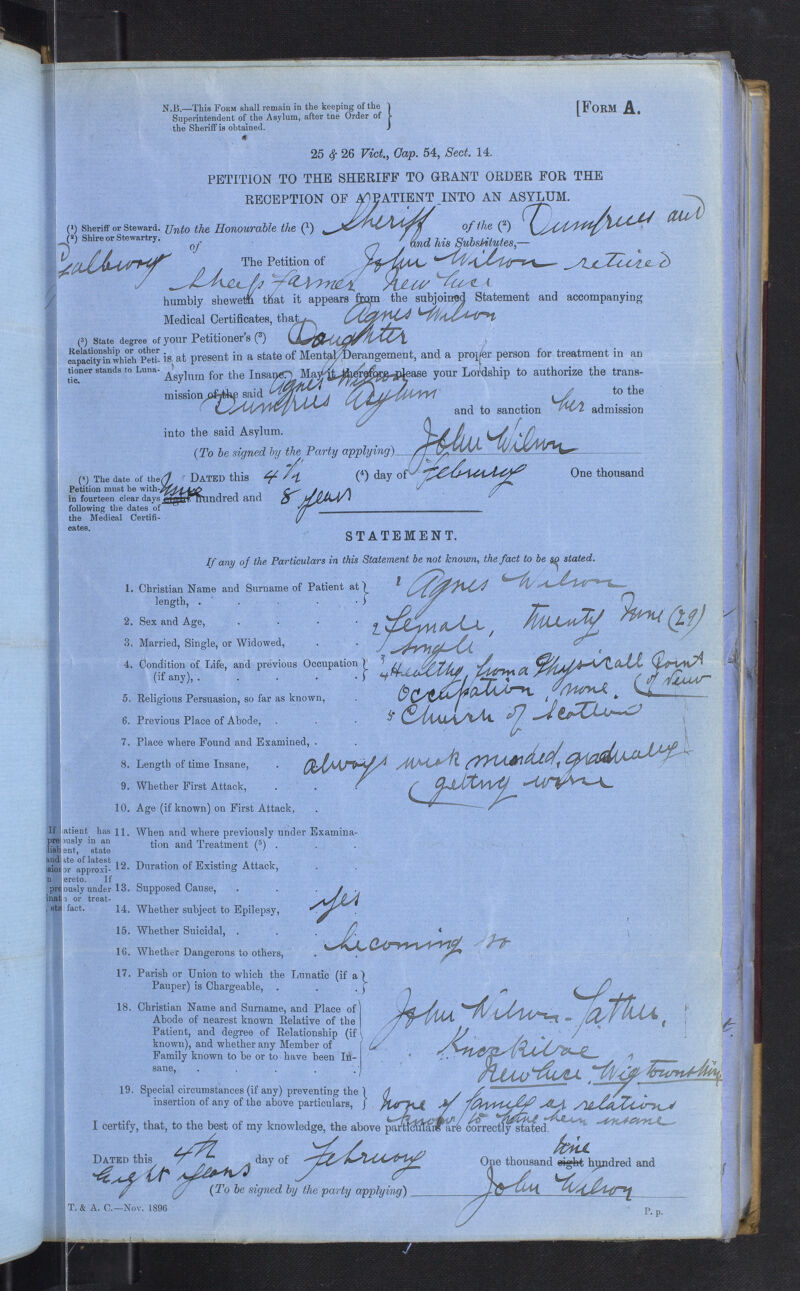 N.B.—This Form shall remain in the keeping of the
Superintendent of the Asylum, after tne Order of
the Sheriff is obtained.
[Form A.
25 & 26 Vict., Cap. 54, Sect. 14.
PETITION TO THE SHERIFF TO GRANT ORDER FOR THE
RECEPTION OF A PATIENT INTO AN ASYLUM.
(¹) Sheriff or Steward.
(²) Shire or Stewartry.
Unto the Honourable the (¹) Sheriff of the (²) Dumfries and
Galloway of and his Substitutes,—
The Petition of John Wilson retired
Sheep Farmer New Luce
humbly sheweth that it appears from the subjoined Statement and accompanying
Medical Certificates, that Agnes Wilson
(³) State degree of
Relationship or other
capacity in which Peti-
tioner stands to Luna-
tic.
your Petitioner's (³) Daughter
is at present in a state of Mental Derangement, and a proper person for treatment in an
Asylum for the Insane. May it therefore please your Lordship to authorize the trans-
mission of the said Agnes Wilson to the
Dumfries Asylum and to sanction her admission
into the said Asylum.
(To be signed by the Party applying) John Wilson
(⁴) The date of the
Petition must be with-
in fourteen clear days
following the dates of
the Medical Certifi-
cates.
Dated this 4th (⁴) day of February One thousand
nine eight hundred and 8 years
STATEMENT.
If any of the Particulars in this Statement be not known, the fact to be so stated.
1. Christian Name and Surname of Patient at
length, . . . . . 1 Agnes Wilson
2. Sex and Age, . . . . 2 female, twenty nine (29)
3. Married, Single, or Widowed, . . 3 single
4. Condition of Life, and previous Occupation
(if any), . . . . . 4 Healthy from a Physicall Point of View
Occupation none.
5. Religious Persuasion, so far as known, . 5 Church of Scotland
6. Previous Place of Abode, . . .
7. Place where Found and Examined, . .
8. Length of time Insane, . always weak minded, gradually
9. Whether First Attack, . . getting worse
10. Age (if known) on First Attack, .
If atient has
ously in an
ent, state
te of latest
or approxi-
ereto. If
ously under
or treat-
fact.
11. When and where previously under Examina-
tion and Treatment (⁵) . . .
12. Duration of Existing Attack, . .
13. Supposed Cause, . . . .
14. Whether subject to Epilepsy, yes
15. Whether Suicidal, . . . .
16. Whether Dangerous to others, . becoming so
17. Parish or Union to which the Lunatic (if a
Pauper) is Chargeable, . . .
18. Christian Name and Surname, and Place of
Abode of nearest known Relative of the
Patient, and degree of Relationship (if
known), and whether any Member of
Family known to be or to have been In-
sane, . . . . .
John Wilson - father,
Knockibae
New Luce, Wigtownshire
19. Special circumstances (if any) preventing the
insertion of any of the above particulars,
None of family or relations
know to have been insane
I certify, that, to the best of my knowledge, the above particulars are correctly stated.
Dated this 4th day of February One thousand nine eight hundred and
Eight years
(To be signed by the party applying) John Wilson
T. & A. C.—Nov. 1896
P. p.